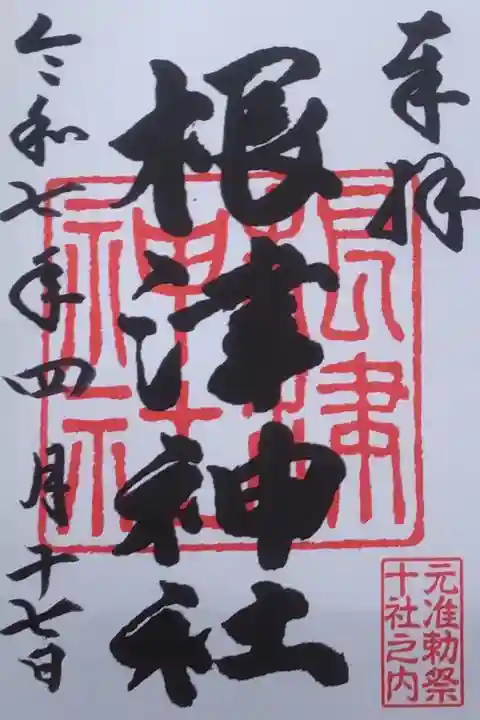 奉拝
根津神社
令和七年四月十七日
根津神社
元准勅祭
十社之内